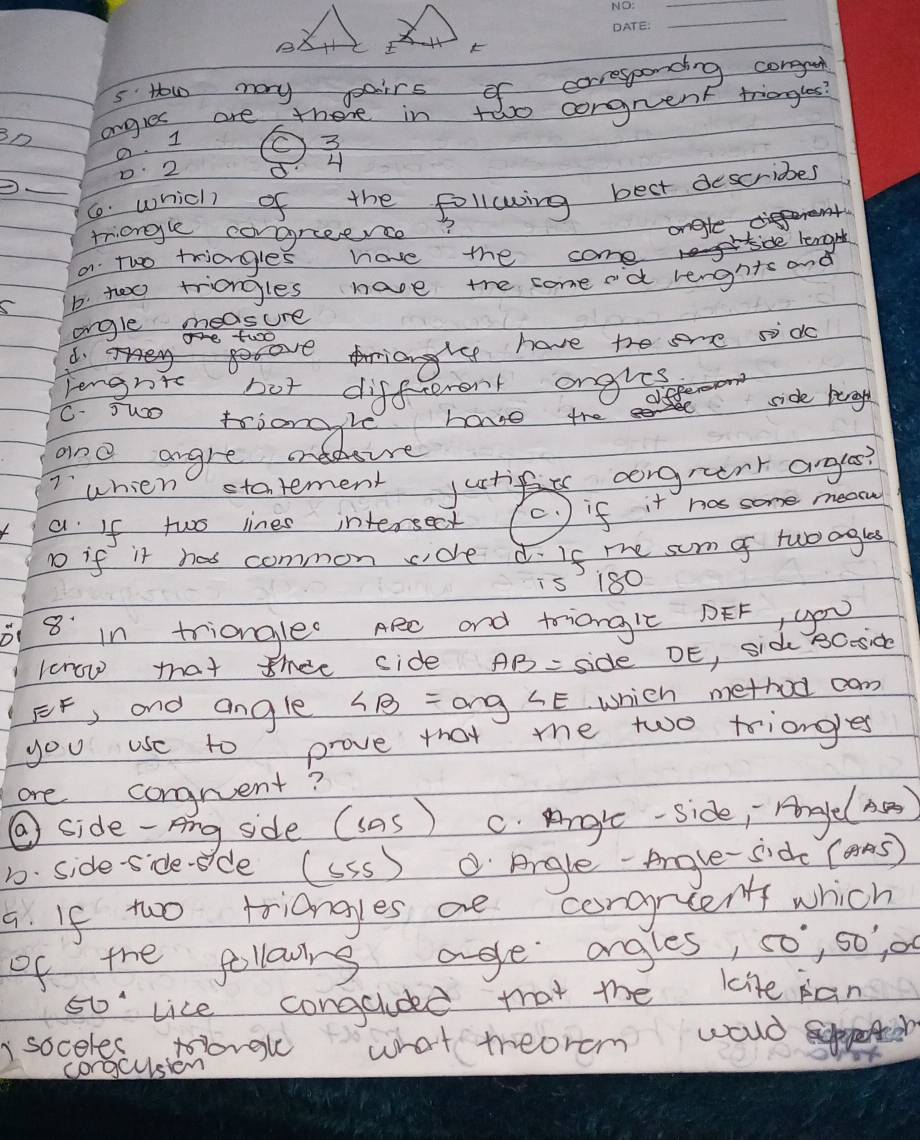 NO:
DATE:
B H C E H F
5. How many pairs of corresponding congruent
angles are there in two congruent triangles?
a. 1 c. 3
b. 2 d. 4
6. which of the following best describes
triangle congreeence?
a. Two triangles have the same angle different side lenght
b. two triangles have the same sid lenghts and
angle measure
d. the two triangles have the same side
lenghts but different angles
C. Two triangle have the different side lenght
and angle measure
7. which statement justifies congruent angles?
a. If two lines intersect c. if it has same measu
b if it has common side d. If the sum of two agles
is 180
8. in triangles ABC and triangle DEF, you
know that side AB = side DE, side BC=side
EF, and angle <B = ang <E which method can
you use to prove that the two triangles
are congruent?
a side - Ang side (SAS) c. Angle - Side, - Angle (ASA)
b. side-side-side (SSS) d. Angle - Angle-side (AAS)
9. If two triangles are congruents which
of the following angles, 50°, 50°,
50° Lice concluded that the kite is an
isoceles triangle what theorem would